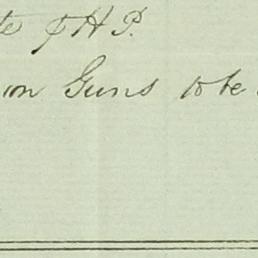 te $ H P.
on Guns to be